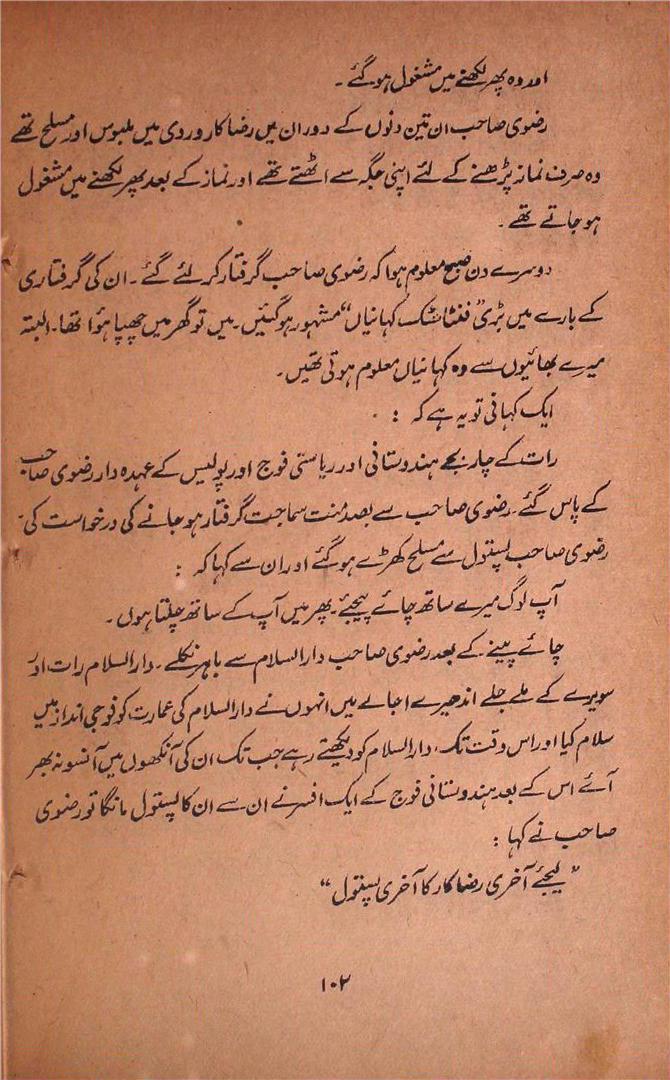 اور وہ پھر لکھنے میں مشغول ہو گئے۔
رضوی صاحب ان تین دنوں کے دوران میں رضاکار وردی میں ملبوس اور مسلح تھے
وہ صرف نماز پڑھنے کے لئے اپنی جگہ سے اٹھتے تھے اور نماز کے بعد پھر لکھنے میں مشغول
ہو جاتے تھے۔
دوسرے دن صبح معلوم ہوا کہ رضوی صاحب گرفتار کر لئے گئے۔ ان کی گرفتاری
کے بارے میں بڑی ”فنٹاسٹک کہانیاں“ مشہور ہو گئیں۔ میں تو گھر میں چھپا ہوا تھا۔ البتہ
میرے بھائیوں سے وہ کہانیاں معلوم ہوتی تھیں۔
ایک کہانی تو یہ ہے کہ :
رات کے چار بجے ہندوستانی اور ریاستی فوج اور پولیس کے عہدہ دار رضوی صاحب
کے پاس گئے۔ رضوی صاحب سے بصد منت سماجت گرفتار ہو جانے کی درخواست کی۔
رضوی صاحب پستول سے مسلح کھڑے ہو گئے اور ان سے کہا کہ :
آپ لوگ میرے ساتھ چائے پیجیئے۔ پھر میں آپ کے ساتھ چلتا ہوں۔
چائے پینے کے بعد رضوی صاحب دارالسلام سے باہر نکلے۔ دارالسلام رات اور
سویرے کے ملے جلے اندھیرے اجالے میں انہوں نے دارالسلام کی عمارت کو فوجی انداز میں
سلام کیا اور اس وقت تک دارالسلام کو دیکھتے رہے جب تک ان کی آنکھوں میں آنسو نہ بھر
آئے اس کے بعد ہندوستانی فوج کے ایک افسر نے ان سے ان کا پستول مانگا تو رضوی
صاحب نے کہا :
”لیجئے آخری رضاکار کا آخری پستول“
۱۰۲